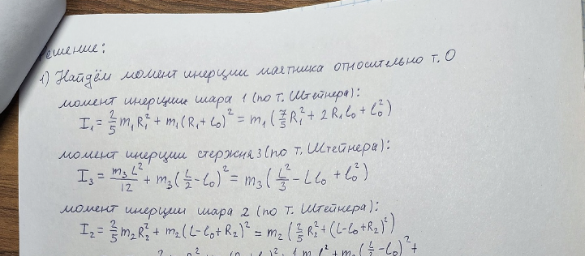 ешение:
1) Найдём момент инерции маятника относительно т. О
момент инерции шара 1 (по т. Штейнера):
I₁ = 2/5 m₁R₁² + m₁(R₁ + l₀)² = m₁(7/5 R₁² + 2R₁l₀ + l₀²)
момент инерции стержня 3 (по т. Штейнера):
I₃ = m₃L²/12 + m₃(L/2 - l₀)² = m₃(L²/3 - Ll₀ + l₀²)
момент инерции шара 2 (по т. Штейнера):
I₂ = 2/5 m₂R₂² + m₂(L - l₀ + R₂)² = m₂(2/5 R₂² + (L - l₀ + R₂)²)